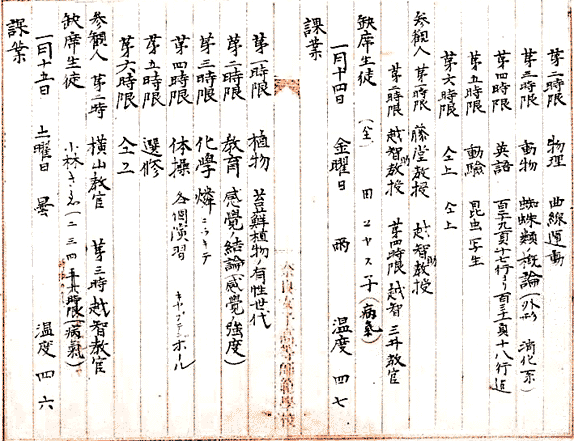 第二時限 物理 曲線運動
第三時限 動物 蜘蛛類ノ概論(外形 消化系)
第四時限 英語 百二十九頁十七行ヨリ百三十一頁十八行迄
第五時限 動驗 昆虫写生
第六時限 仝上 仝上
参観人 第一時限 藤堂教授 越智助教授
第二時限 越智助教授 第四時限 越智 三井教官
缺席生徒 (全) 田 ヤス子(病氣)
一月十四日 金曜日 雨 温度 四七
課業
第一時限 植物 苔鮮植物ノ有性世代
第二時限 教育 感覺ノ結論(感覺ノ強度)
第三時限 化學 燐ニツキテ
第四時限 体操 各個演習 キャプテンボール
第五時限 選修
第六時限 仝上
参観人 第二時 横山教官 第三時 越智教官
缺席生徒 小林 (二三四五六時限)(病氣)
一月十五日 土曜日 曇 温度 四六
課業
奈良女子高等師範學校